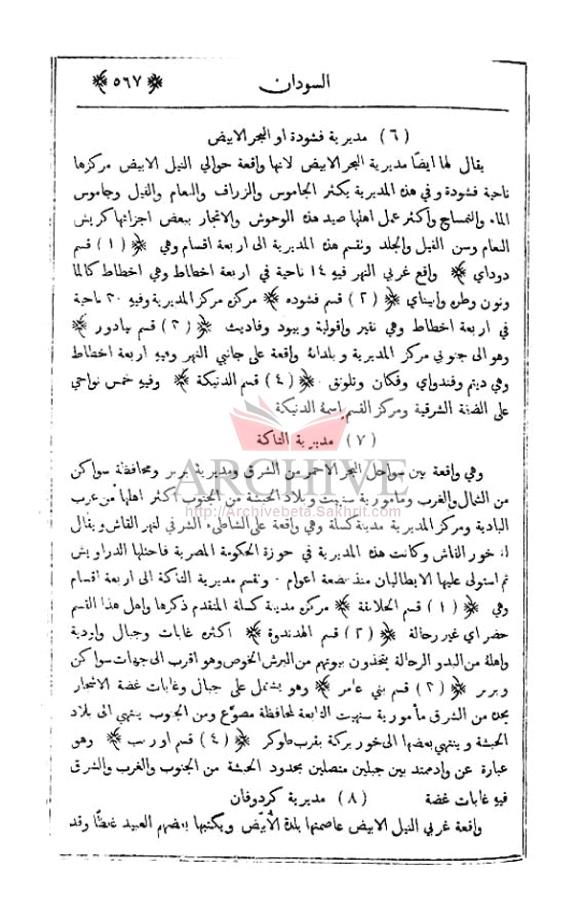 السودان ﴿ ٥٦٧ ﴾
( ٦ ) مديرية فشودة او البحر الابيض
يقال لها ايضًا مديرية البحر الابيض لانها واقعة حوالي النيل الابيض مركزها
ناحية فشودة وفي هذه المديرية يكثر الجاموس والزراف والنعام والفيل وجاموس
الماء والتمساح واكثر عمل اهلها صيد هذه الوحوش والاتجار ببعض اجزائها كريش
النعام وسن الفيل والجلد وتقسم هذه المديرية الى اربعة اقسام وهي ﴿ ( ١ ) قسم
دوداي ﴾ واقع غربي النهر فيه ١٤ ناحية في اربعة اخطاط وهي اخطاط كالما
ونون وطره وابيناي ﴿ ( ٢ ) قسم فشوده ﴾ مركزه مركز المديرية وفيه ٢٠ ناحية
في اربعة اخطاط وهي نقير واقولية وبيود وفاديث ﴿ ( ٣ ) قسم يادور ﴾
وهو الى جنوبي مركز المديرية وبلدانه واقعة على جانبي النهر وفيه اربعة اخطاط
وهي ديتم وفندواي وفكان وتلونق ﴿ ( ٤ ) قسم الدنيكة ﴾ وفيه خمس نواحي
على الضفة الشرقية ومركز القسم اسمه الدنيكة
( ٧ ) مديرية التاكة
ARCHIVE
وهي واقعة بين سواحل البحر الاحمر من الشرق ومديرية بربر ومحافظة سواكن
من الشمال والغرب ومأمورية سنهيت وبلاد الحبشة من الجنوب اكثر اهلها من عرب
http://Archivebeta.Sakhrit.com
البادية ومركز المديرية مدينة كسلة وهي واقعة على الشاطىء الشرقي لنهر القاش ويقال
له خور القاش وكانت هذه المديرية في حوزة الحكومة المصرية فاحتلها الدراويش
ثم استولى عليها الايطاليان منذ بضعة اعوام . وتقسم مديرية التاكة الى اربعة اقسام
وهي ﴿ ( ١ ) قسم الحلانقة ﴾ مركزه مدينة كسلة المتقدم ذكرها واهل هذا القسم
حضر اي غير رحالة ﴿ ( ٢ ) قسم الهدندوة ﴾ اكثره غابات وجبال واودية
واهله من البدو الرحالة يتخذون بيوتهم من البرش الخوص وهو اقرب الى جهات سواكن
وبربر ﴿ ( ٣ ) قسم بني عامر ﴾ وهو يشتمل على جبال وغابات غضة الاشجار
يحده من الشرق مأمورية سنهيت التابعة لمحافظة مصوّع ومن الجنوب ينتهي الى بلاد
الحبشة وينتهي بعضها الى خور بركة بقرب طوكر ﴿ ( ٤ ) قسم اورب ﴾ وهو
عبارة عن وادٍ ممتد بين جبلين متصلين بحدود الحبشة من الجنوب والغرب والشرق
فيه غابات غضة ( ٨ ) مديرية كردوفان
واقعة غربي النيل الابيض عاصمتها بلدة الأُبيّض ويكتبها بعضهم العبيد غلطًا وقد